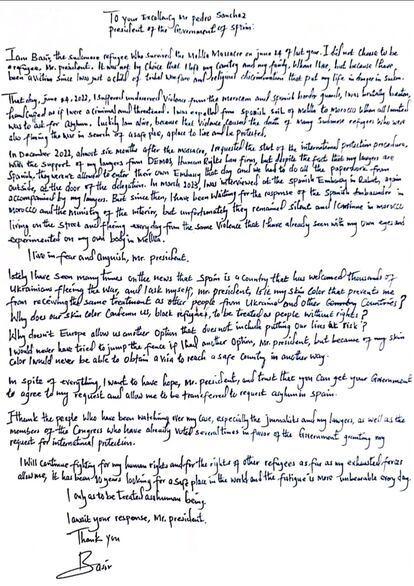 To your Excellency Mr pedro Sanchez
president of the Government of Spain:
I am Basir, the sudanese refugee who survived the Melilla Massacre on june 24 of last year. I did not choose to be
refugee, Mr. president. It was not by choice that I left my country and my family, when I left, but because I have
been a victim since I was just a child of tribal warfare and religious discrimination that put my life in danger in sudan.
That day, june 24, 2022, I suffered undeserved Violence from the moroccan and spanish border guards, I was brutally beaten,
handcuffed as if I were a criminal and threatened. I was expelled from Spanish soil of Melilla to Morocco when all I wanted
was to ask for Asylum. luckily I am alive, because this Violence caused the death of many Sudanese refugees who were
also fleeing the war in search of a safe place, a place to live and be protected.
In December 2022, almost six months after the massacre, I requested the start of the international protection procedure,
with the support of my lawyers from DEMOS Human Rights Law firm, but despite the fact that my lawyers are
Spanish, they weren't allowed to enter their own Embassy that day and we had to do all the paperwork from
outside, at the door of the delegation. In March 2023, I was interviewed at the Spanish Embassy in Rabat, again
accompanied by my lawyers. But since then, I have been waiting for the response of the Spanish Ambassador in
Morocco and the Ministry of the interior, but unfortunately they remained silent and I continue in morocco
living on the street and fleeing everyday from the same Violence that I have already seen with my own eyes and
experimented on my own body in Melilla.
I live in fear and anguish, mr. president.
lately I have seen many times on the news that Spain is a country that has welcomed thousands of
Ukrainians fleeing the War, and I ask myself, mr. president, is it my skin color that prevents me
from receiving the same treatment as other people from Ukraine and other Countries?
Why does our skin color Condemn us, black refugees, to be treated as people without rights?
Why doesn't Europe allow us another option that does not include putting our lives at risk?
I would never have tried to jump the fence if I had another option, Mr. president, but because of my skin
color I would never be able to obtain a Visa to reach a safe country in another way.
In spite of everything, I want to have hope, Mr. president, and trust that you can get your Government
to agree to my request and allow me to be transferred to request asylum in spain.
I thank the people who have been watching over my case, especially the journalists and my lawyers, as well as the
members of the Congress who have already voted several times in favor of the Government granting my
request for international protection.
I Will continue fighting for my human rights and for the rights of other refugees as far as my exhausted forces
allow me, it has been 10 years looking for a safe place in the world and the fatigue is more unbearable every day.
I only ask to be treated as human being.
I await your response, Mr. president.
Thank you
Basir